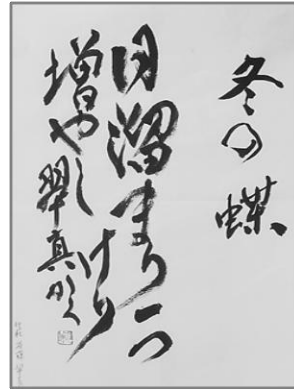 冬の蝶
日溜まり一つ
増やしけり
翠真かく